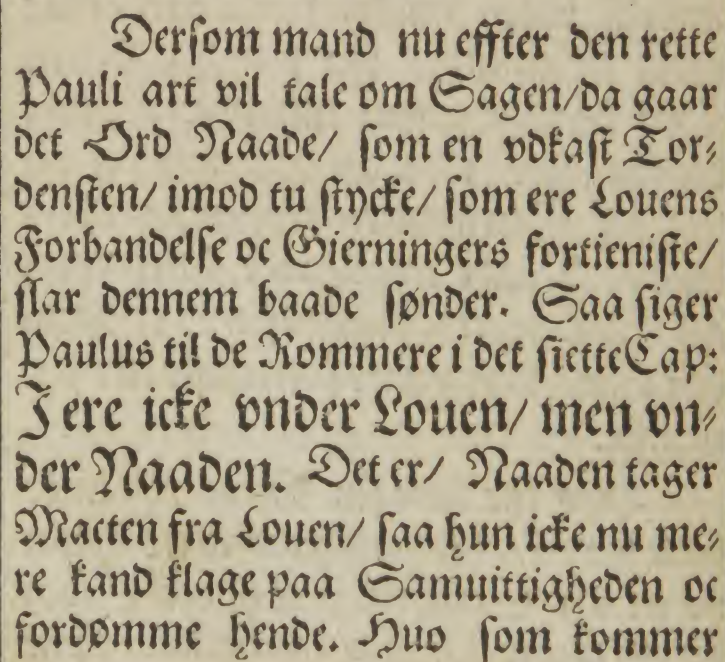 Derſom mand nu effter den rette
Pauli art vil tale om Sagen/da gaar
det Ord Naade/ ſom en vdkaſt Tor⸗
denſten/ imod tu ſtycke/ ſom ere Louens
Forbandelſe oc Gierningers fortieniſte/
ſlar dennem baade ſønder. Saa ſiger
Paulus til de Rommere i det ſiette Cap:
J ere icke vnder Louen/ men vn⸗
der Naaden. Det er/ Naaden tager
Macten fra Louen/ ſaa hun icke nu me⸗
re kand klage paa Samuittigheden oc
fordømme hende. Huo ſom kommer